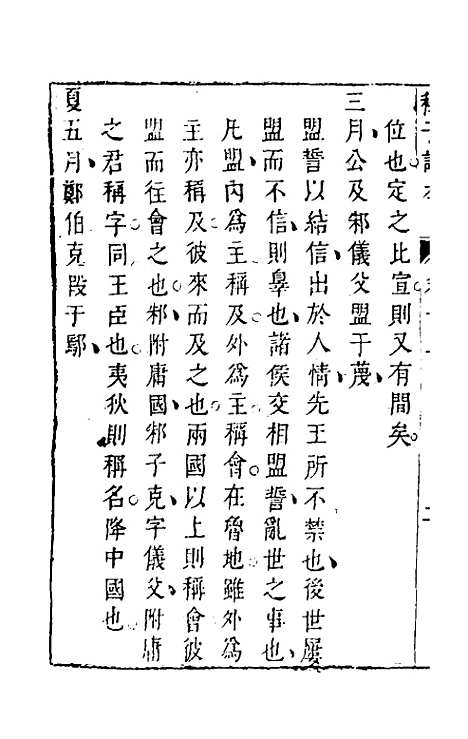 位也定之比宣則又有間矣
三月公及邾儀父盟于蔑
盟誓以結信出於人情先王所不禁也後世屢
盟而不信則辠也諸侯交相盟誓亂世之事也
凡盟內為主稱及外為主稱會在魯地雖外為
主亦稱及彼來而及之也兩國以上則稱會彼
盟而往會之也邾附庸國邾子克字儀父附庸
之君稱字同王臣也夷狄則稱名降中國也
夏五月鄭伯克段于鄢